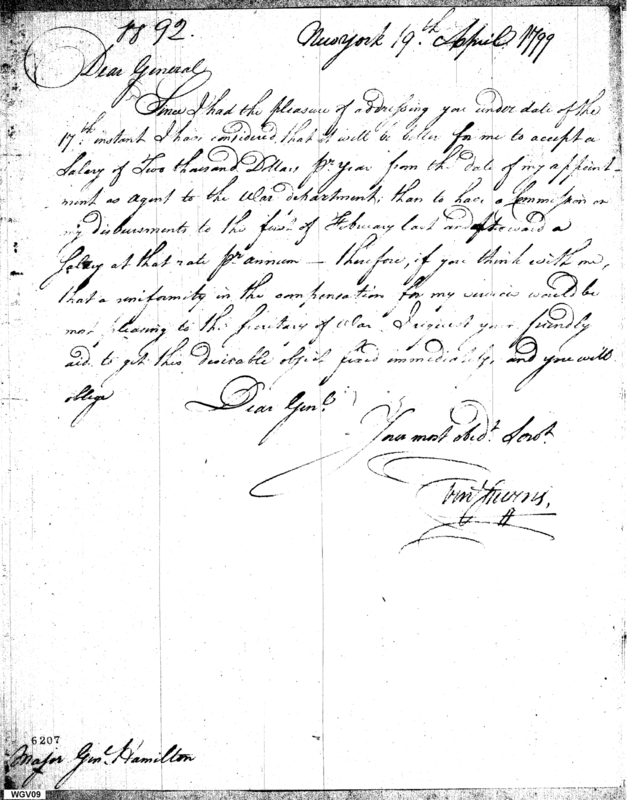 No 92.
New York 19th April 1799
Dear General
Since I had the pleasure of addressing you under date of the
17th instant I have considered that it will be better for me to accept a
Salary of Two thousand Dollars pr. year from the date of my appoint-
ment as agent to the War department; than to have a Commission on
my disbursments to the first of February last and afterward a
Salary at that rate pr. annum — therefore, if you think with me,
that a uniformity in the compensation for my service would be
most pleasing to the Secretary of War. I request your friendly
aid to get this desirable object fixed immediately, and you will
oblige Dear Genl.
Your most obedt. Servt.
6207
Major Genl. Hamilton
WGV09